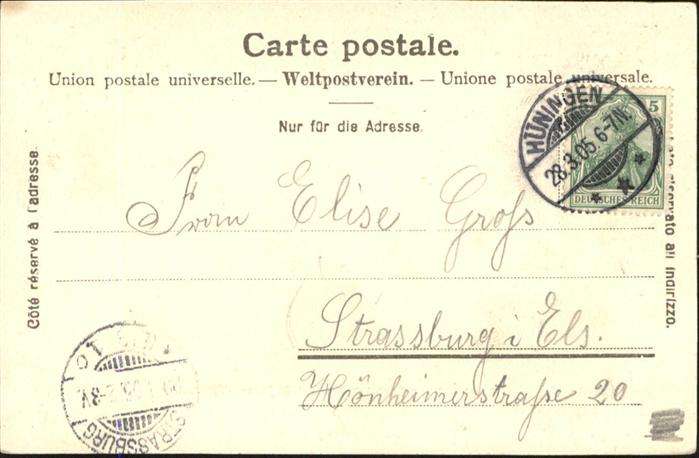 Carte postale.
Union postale universelle. — Weltpostverein. — Unione postale universale.
Nur für die Adresse.
Côté réservé à l'adresse.
Lato riservato all'indirizzo.
HÜNINGEN
28.3.05. 6-7N.
5
DEUTSCHES REICH
Frau Elise Groß
Strassburg i Els.
Hönheimerstraße 20
STRASSBURG